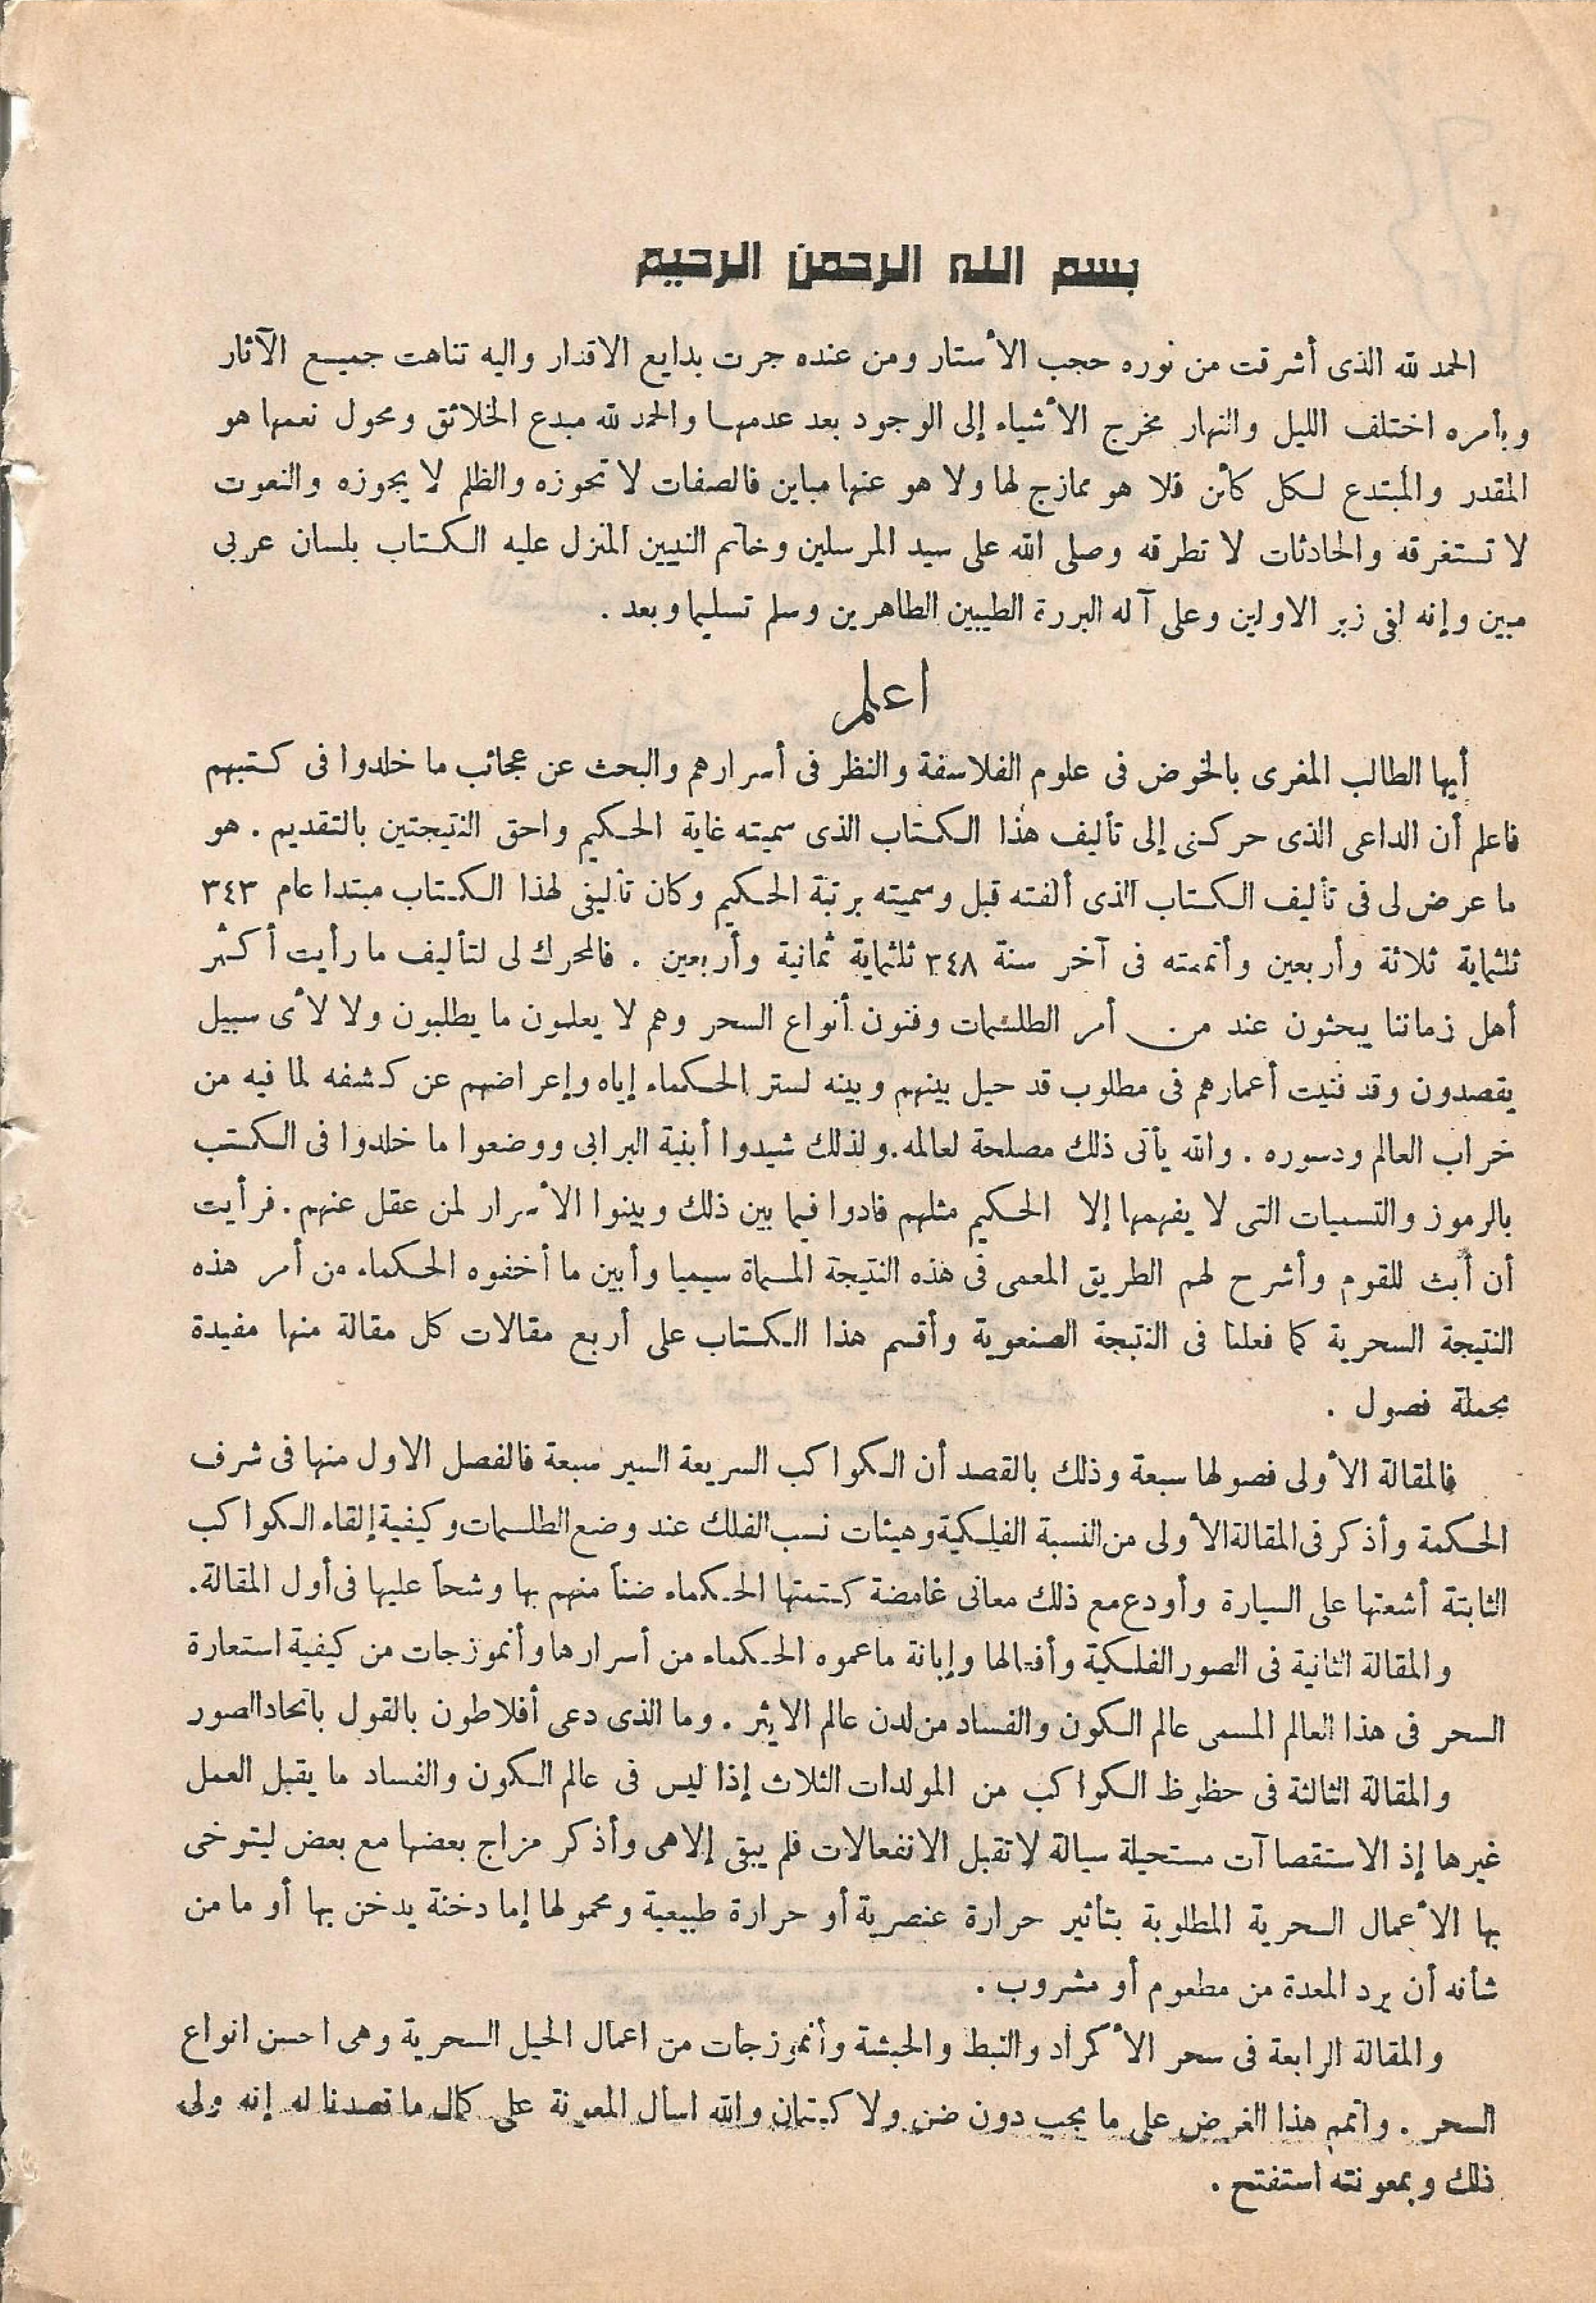 بسم الله الرحمن الرحيم
الحمد لله الذى أشرقت من نوره حجب الأستار ومن عنده جرت بدايع الاقدار واليه تناهت جميع الآثار
وبأمره اختلف الليل والنهار مخرج الأشياء إلى الوجود بعد عدمها والحمد لله مبدع الخلائق ومحول نعمها هو
المقدر والمبتدع لكل كأن فلا هو ممازج لها ولا هو عنها مباين فالصفات لا تحوزه والظلم لا يجوزه والنعوت
لا تستغرقه والحادثات لا تطرقه وصلى الله على سيد المرسلين وخاتم النبيين المنزل عليه الكتاب بلسان عربى
مبين وإنه لفى زبر الاولين وعلى آله البررة الطيبين الطاهرين وسلم تسليما وبعد .
اعلم
أيها الطالب المغرى بالخوض فى علوم الفلاسفة والنظر فى أسرارهم والبحث عن عجائب ما خلدوا فى كتبهم
فاعلم أن الداعى الذى حركنى إلى تأليف هذا الكتاب الذى سميته غاية الحكيم واحق النتيجتين بالتقديم . هو
ما عرض لى فى تأليف الكتاب الذى ألفته قبل وسميته برتبة الحكيم وكان تأليفى لهذا الكتاب مبتدا عام ٣٤٣
ثلثماية ثلاثة وأربعين وأتممته فى آخر سنة ٣٤٨ ثلثماية ثمانية وأربعين . فالمحرك لى لتأليف ما رأيت أكثر
أهل زماننا يبحثون عند من أمر الطلسمات وفنون أنواع السحر وهم لا يعلمون ما يطلبون ولا لأى سبيل
يقصدون وقد فنيت أعمارهم فى مطلوب قد حيل بينهم وبينه لستر الحكماء إياه وإعراضهم عن كشفه لما فيه من
خراب العالم ودسوره . والله يأتى ذلك مصلحة لعالمه . ولذلك شيدوا أبنية البرابى ووضعوا ما خلدوا فى الكتب
بالرموز والتسميات التى لا يفهمها إلا الحكيم مثلهم فادوا فيما بين ذلك وبينوا الأسرار لمن عقل عنهم . فرأيت
أن أبث للقوم وأشرح لهم الطريق المعمى فى هذه النتيجة المسماة سيميا وأبين ما أخفوه الحكماء من أمر هذه
النتيجة السحرية كما فعلنا فى النتيجة الصنعوية وأقسم هذا الكتاب على أربع مقالات كل مقالة منها مفيدة
بجملة فصول .
فالمقالة الأولى فصولها سبعة وذلك بالقصد أن الكواكب السريعة السير سبعة فالفصل الاول منها فى شرف
الحكمة وأذكر فى المقالة الأولى من النسبة الفلكية وهيئات نسب الفلك عند وضع الطلسمات وكيفية إلقاء الكواكب
الثابتة أشعتها على السيارة وأودع مع ذلك معانى غامضة كتمتها الحكماء ضنأ منهم بها وشحأ عليها فى أول المقالة .
والمقالة الثانية فى الصور الفلكية وأفعالها وإبانة ما عموه الحكماء من أسرارها وأنموزجات من كيفية استعارة
السحر فى هذا العالم المسمى عالم الكون والفساد من لدن عالم الايثر . وما الذى دعى أفلاطون بالقول باتحاد الصور
والمقالة الثالثة فى حظوظ الكواكب من المولدات الثلاث إذا ليس فى عالم الكون والفساد ما يقبل العمل
غيرها إذ الاستقصاآت مستحيلة سيالة لا تقبل الانفعالات فلم يبق إلا هى وأذكر مزاج بعضها مع بعض ليتوخى
بها الأعمال السحرية المطلوبة بتأثير حرارة عنصرية أو حرارة طبيعية ومحمولها إما دخنة يدخن بها أو ما من
شأنه أن يرد المعدة من مطعوم أو مشروب .
والمقالة الرابعة فى سحر الأكراد والنبط والحبشة وأنموزجات من اعمال الحيل السحرية وهى احسن انواع
السحر . واتمم هذا الغرض على ما يجب دون ضن ولا كتمان والله اسأل المعونة على كمال ما قصدنا له إنه ولى
ذلك وبمعونته استفتح .